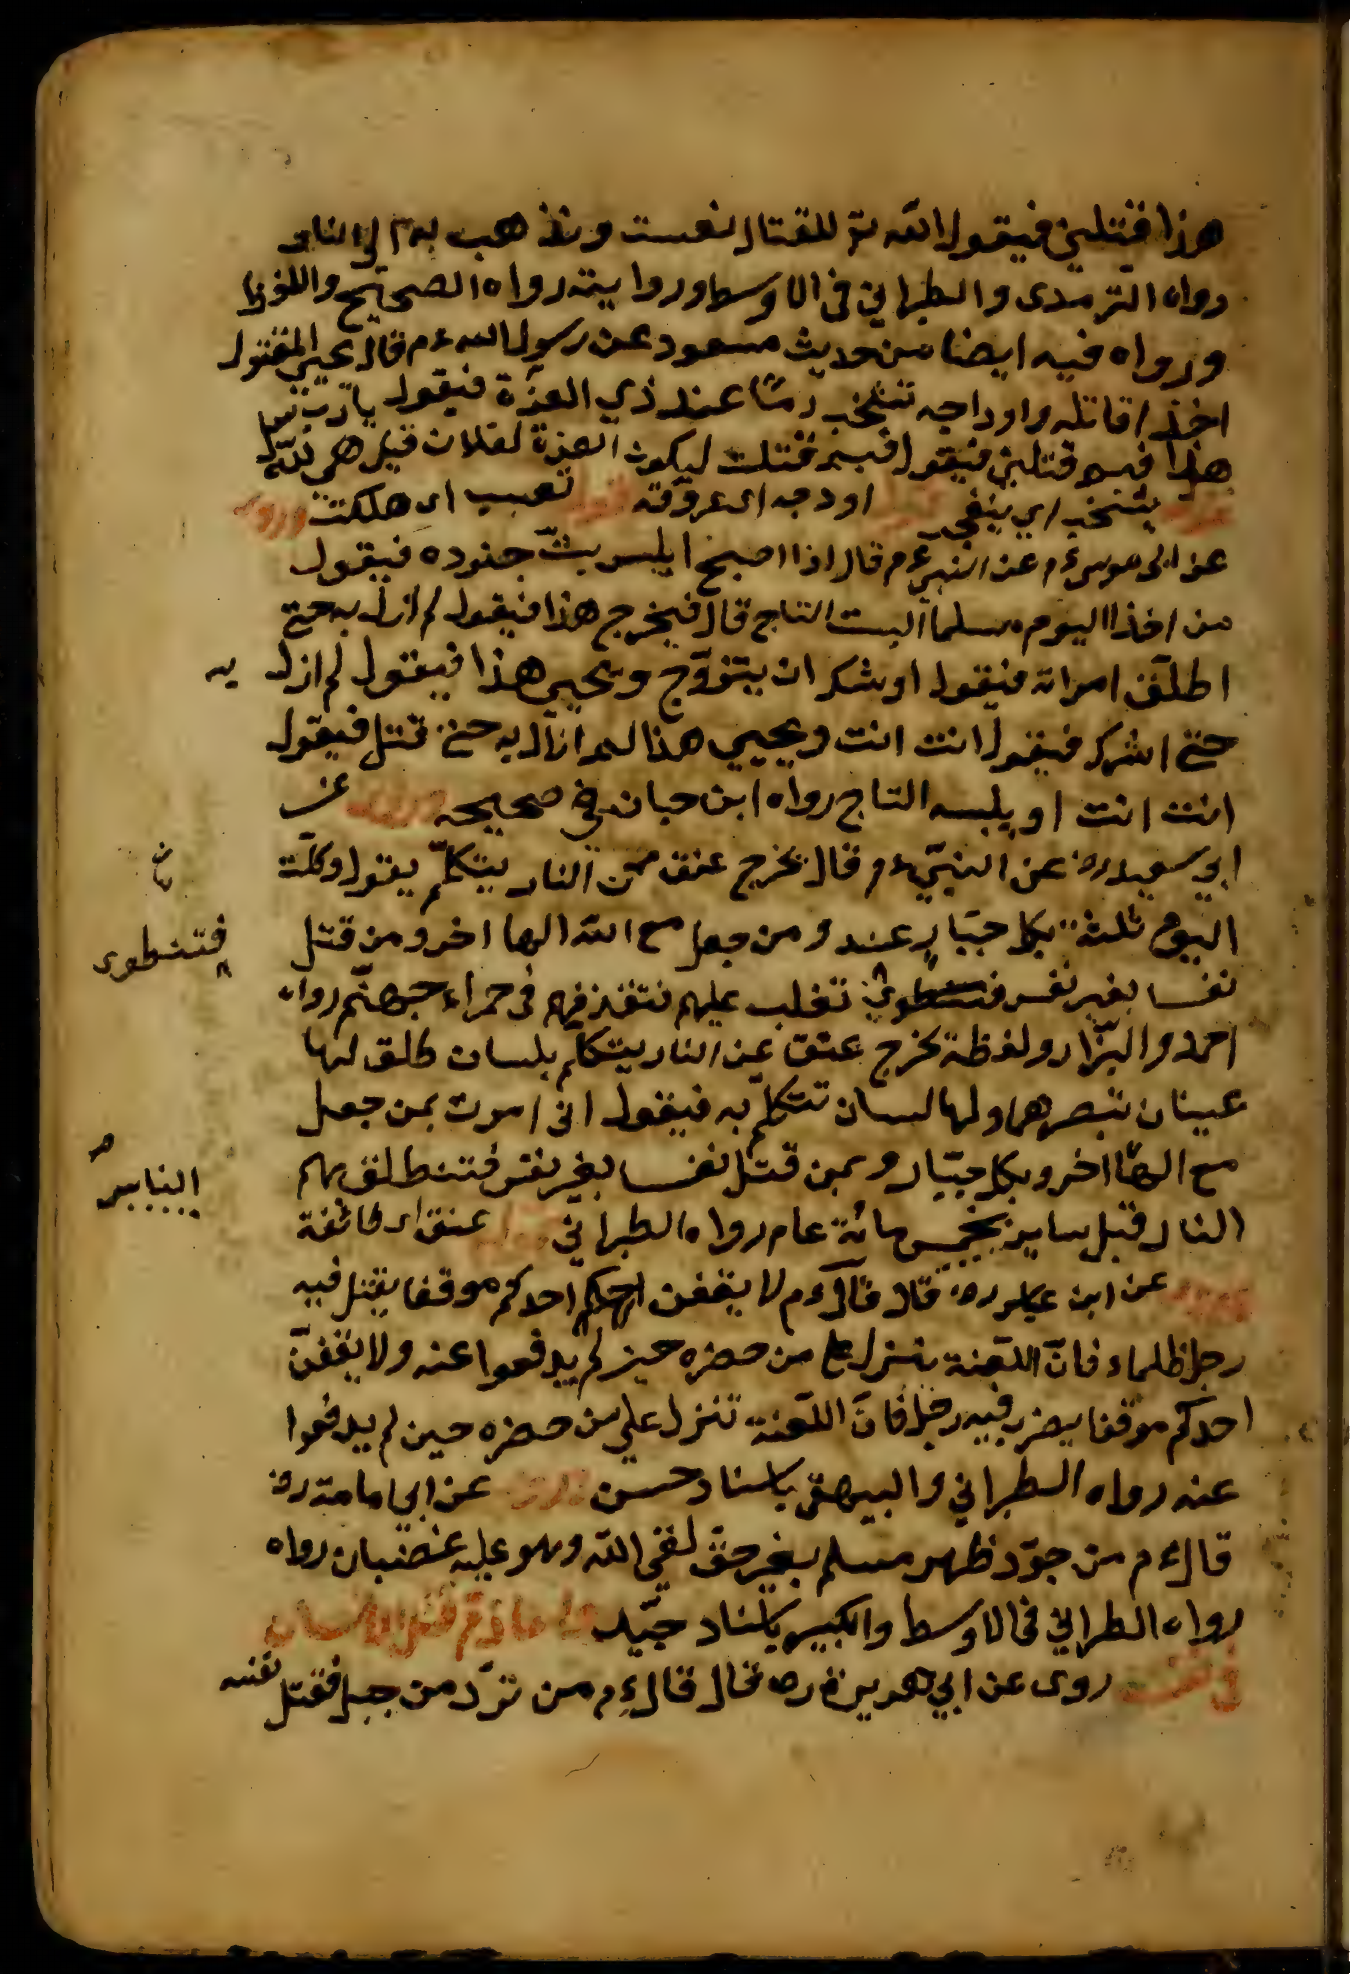 هذا قتلني فيقول الله تع للقتال تعست ونذهب بهم الى النار
رواه الترمذى والطبراني فى الاوسط وروايته رواه الصحيح واللفظ لها
ورواه فيه ايضا من حديث مسعود عن رسول الله ءم قال يجئ المقتول
اخذا قاتله واوداجه تشخب دما عند ذي العزة فيقول يا رب سل
هذا فيم قتلني فيقول فيم قتلت ليكون العزة لفلان قيل هى لله
قوله يشخب اي ينفجر قوله اودجه اى عروقه قوله تعب اى هلكت وروى
عن ابى موسى ءم عن النبي ءم قال اذا اصبح ابليس بثّ جنوده فيقول
من اخذ اليوم مسلما البست التاج قال فيخرج هذا فيقول لم ازل به حتى
اطلق امراته فيقول اوشك ان يتزوّج ويجيى هذا فيقول لم ازل به
حتى اشرك فيقول انت انت ويجيى هذا لم ازال به حتى قتل فيقول
انت انت او يلبسه التاج رواه ابن حبان في صحيحه وروى عن
ابي سعيد رض عن النبي ءم قال يخرج عنق من النار يتكلم يقول وكلت
اليوم ثلثة بكل جبّار عند ومن جعل مع الله الها اخر ومن قتل
نفسا بغير نفس فتنطوي تغلب عليهم فتقذفهم فى حمراء جهنّم رواه
احمد والبزّار ولفظه يخرج عتق من النار يتكلم بلسان طلق لها
عينان تبصر هما ولها لسان تتكلم به فيقول انى امرت بمن جعل
مع الله الها اخر وبكل جبّار وبمن قتل نفسا بغير نفس فتنطلق بهم
النار قبل ساير بخمس مائة عام رواه الطبراني قوله عنق اى طائفة
وروى عن ابن عباس رض قال قال ءم لا يقفن احدكم موقفا يقتل فيه
رجل ظلماء فانّ اللعنة تنزل على من حضره حين لم يدفعوا عنه ولا يقفنّ
احدكم موقفا يضرب فيه رجل فانّ اللعنة تنزل على من حضره حين لم يدفعوا
عنه رواه الطبراني والبيهقى باسناد حسن وروى عن ابى امامة رض
قال ءم من جوّد ظهر مسلم بغير حق لقى الله وهو عليه غضبان رواه
رواه الطبراني فى الاوسط والكبير باسناد جيّد واما ذمّ قتل الانسان
في نفسه روى عن ابي هريرة رض قال قال ءم من تردّ من جبل فقتل نفسه
خ
فتنطوى
الناس